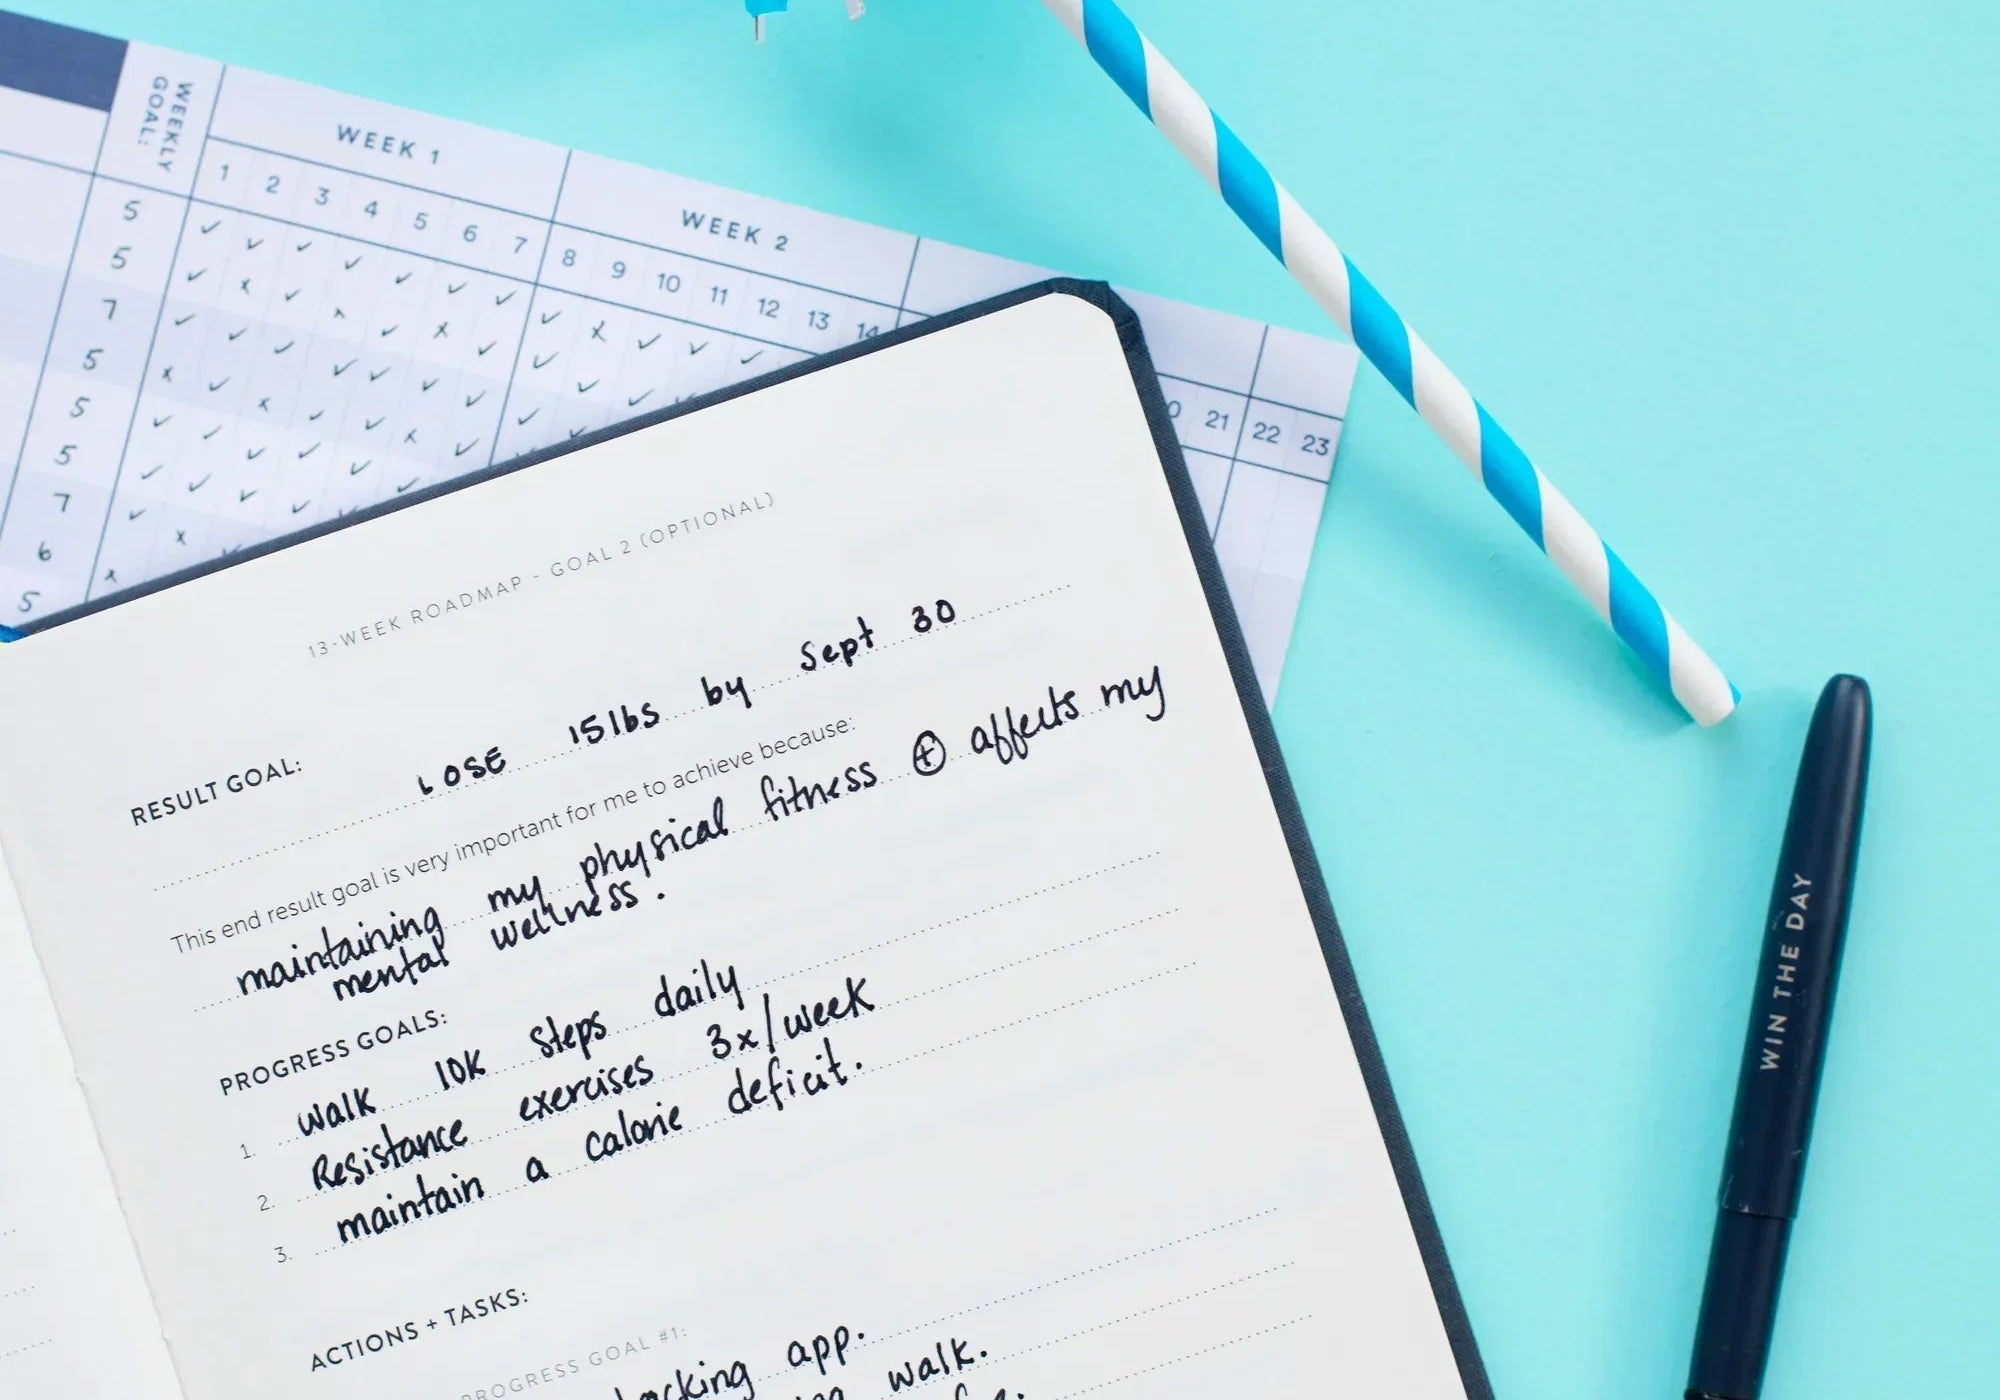 WEEKLY
GOAL:
WEEK 1
WEEK 2
1 2 3 4 5 6 7 8 9 10 11 12 13 14
21 22 23
5
5
7
5
5
5
7
6
5
13-WEEK ROADMAP - GOAL 2 (OPTIONAL)
RESULT GOAL: LOSE 15lbs by Sept 30
This end result goal is very important for me to achieve because:
maintaining my physical fitness ⊕ affects my
mental wellness.
PROGRESS GOALS:
1. Walk 10K steps daily
2. Resistance exercises 3x/week
3. maintain a calorie deficit.
ACTIONS + TASKS:
PROGRESS GOAL #1:
app.
walk.
WIN THE DAY